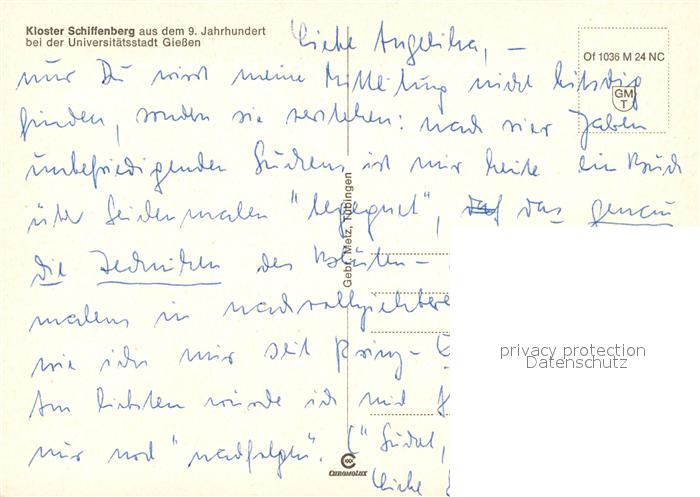 Kloster Schiffenberg aus dem 9. Jahrhundert
bei der Universitätsstadt Gießen
Of 1036 M 24 NC
GM
T
Liebe Angelika, –
nur Du wirst meine Mitteilung nicht kitschig
finden, sondern sie verstehen: nach vier Jahren
unbefriedigenden Suchens ist mir heute ein Buch
über Seidenmalen "begegnet", das genau
die Techniken des Blüten-
malens in nachvollziehbarer
wie ich mir seit
Am liebsten würde ich mich
nur noch "nachfolgen". ("Sucht,
Liebe
Gebr. Metz, Tübingen
CHROMOLUX
privacy protection
Datenschutz